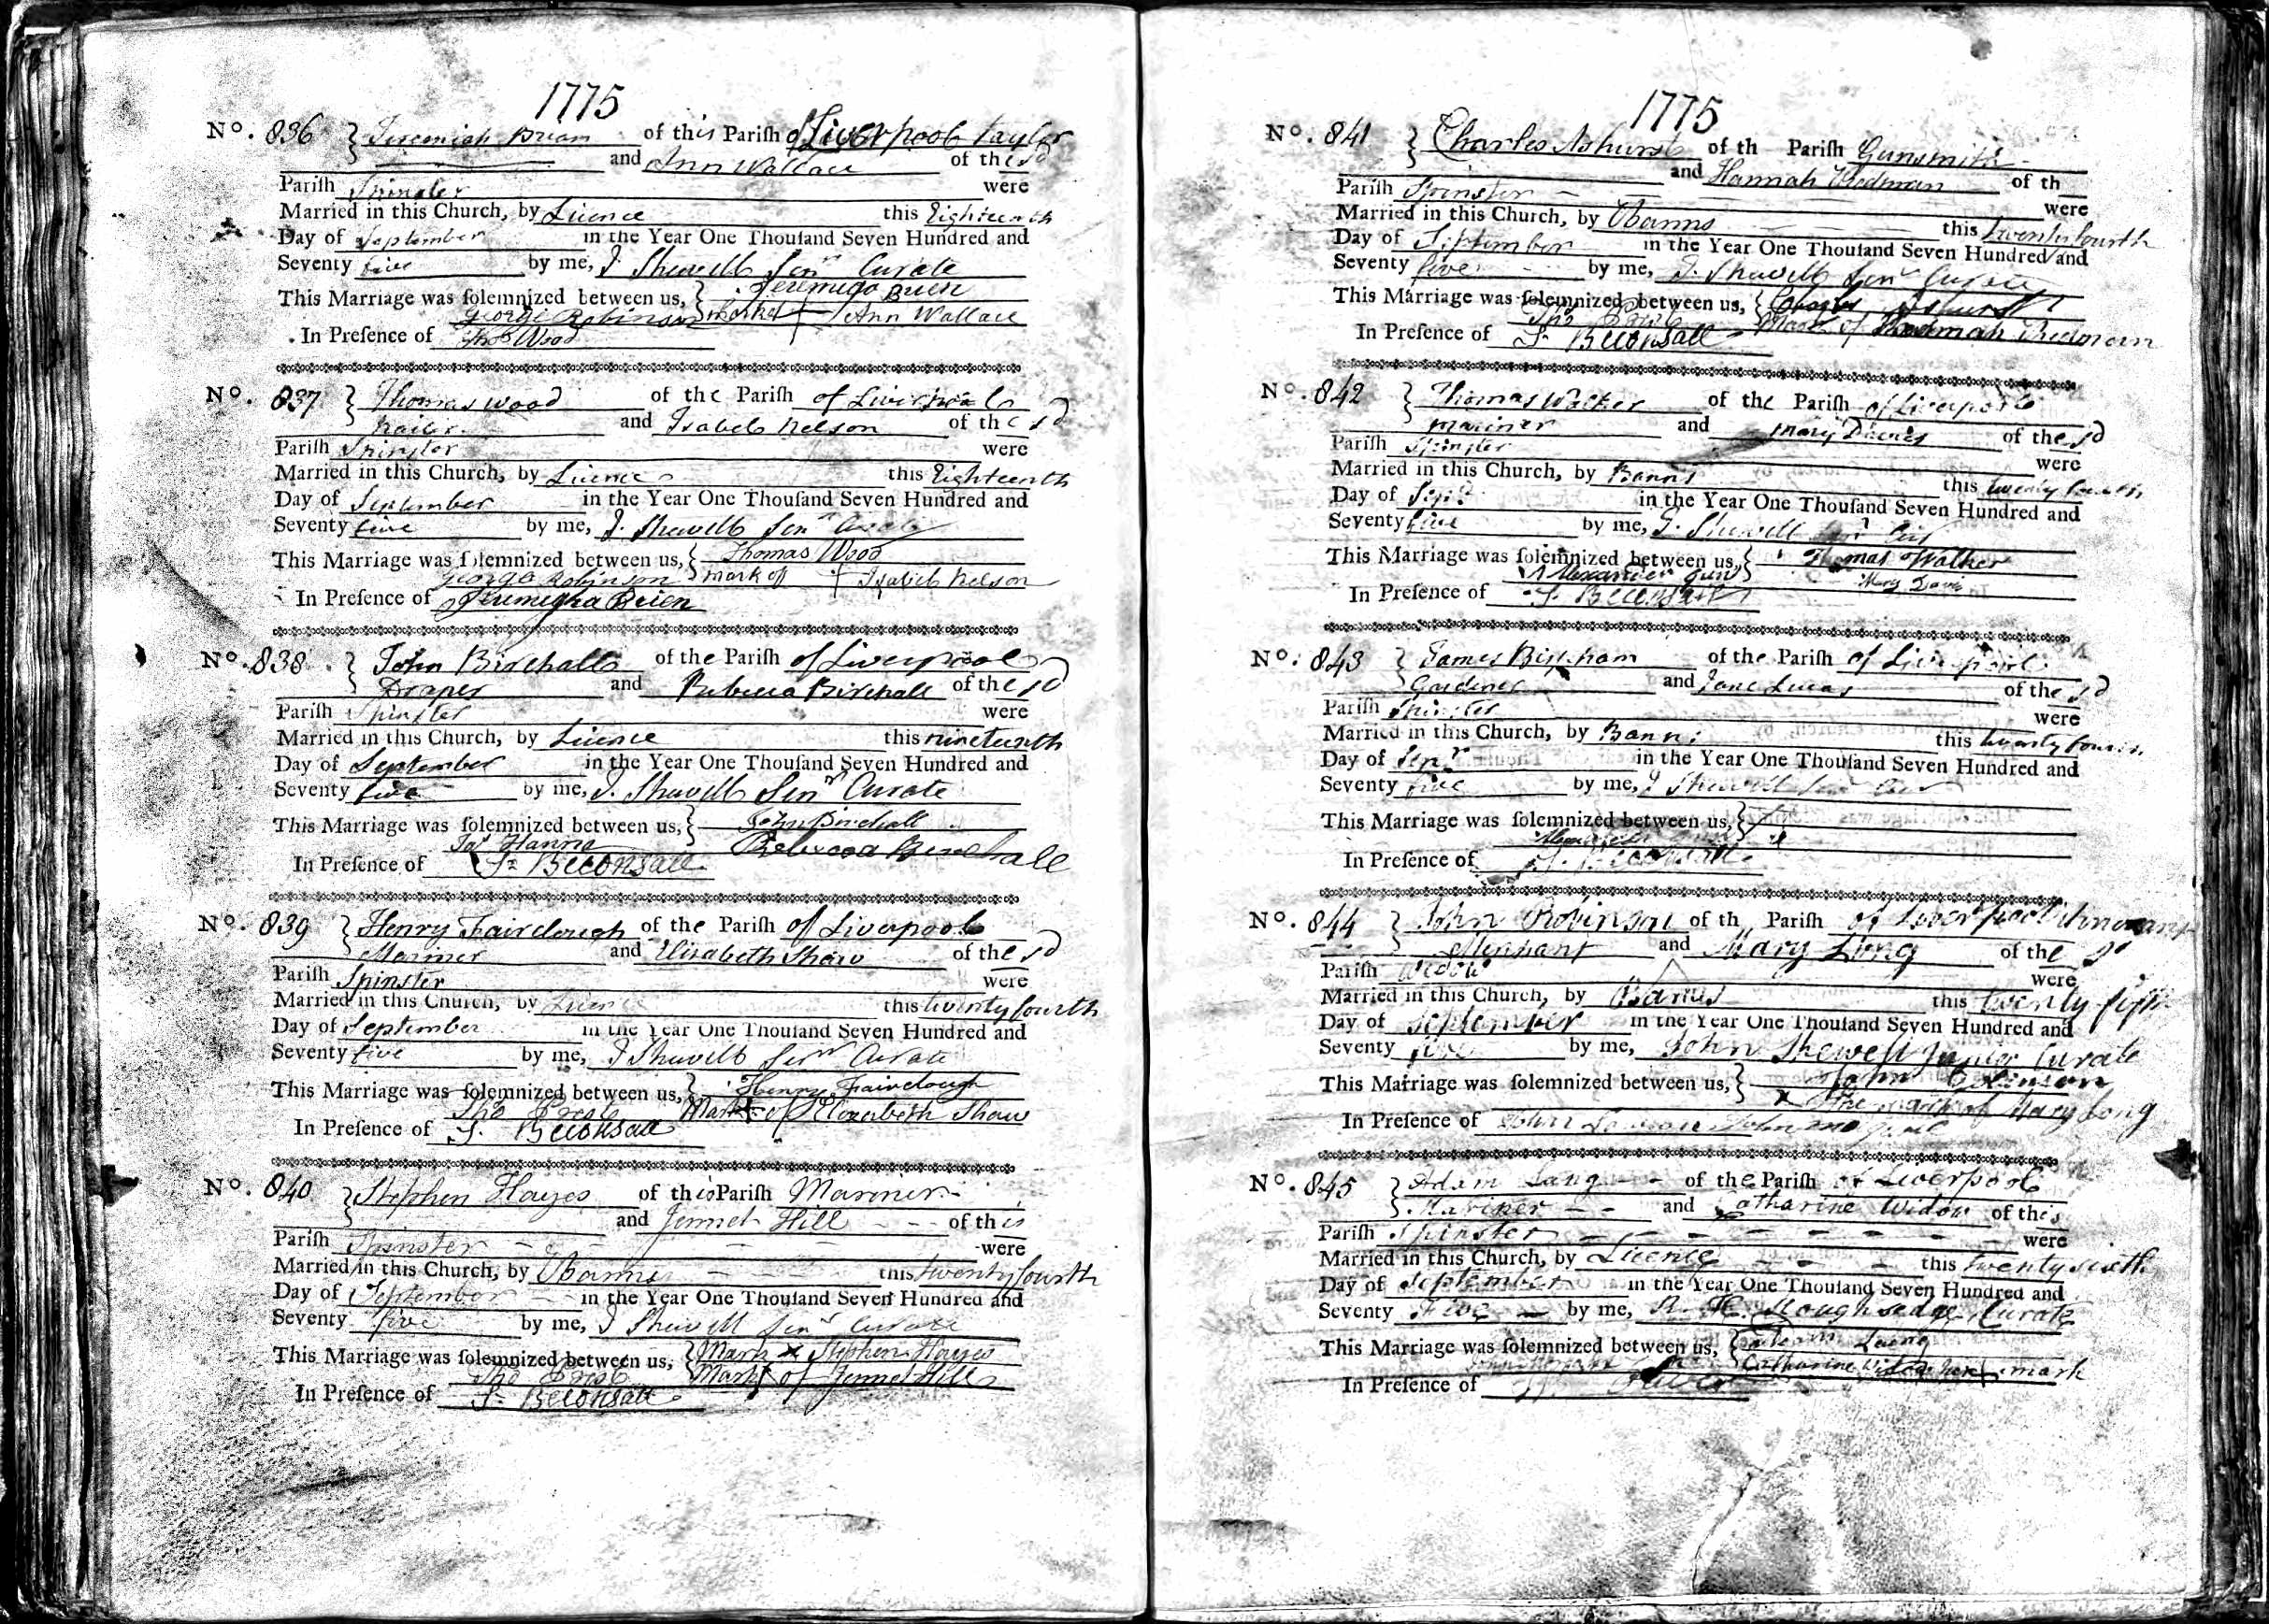 1775
No. 836 } Jeremiah Brian of this Parish of Liverpool Taylor
and Ann Wallace of the sd
Parish Spinster were
Married in this Church, by Licence this Eighteenth
Day of September in the Year One Thousand Seven Hundred and
Seventy five by me, J. Shewell Senr Curate
This Marriage was solemnized between us, { Jeremiga Brien
George Robinson marke + Ann Wallace
In Presence of Thos Wood
No. 837 } Thomas Wood of the Parish of Liverpool
Nailer and Isabel Nelson of the sd
Parish Spinster were
Married in this Church, by Licence this Eighteenth
Day of September in the Year One Thousand Seven Hundred and
Seventy five by me, J. Shewell Senr Curate
This Marriage was solemnized between us, { Thomas Wood
George Robinson mark of + Isabel Nelson
In Presence of Jeremigha Brien
No. 838 } John Birchall of the Parish of Liverpool
Draper and Rebecca Birchall of the sd
Parish Spinster were
Married in this Church, by Licence this nineteenth
Day of September in the Year One Thousand Seven Hundred and
Seventy five by me, J. Shewell Senr Curate
This Marriage was solemnized between us, { John Birchall
Jas Hanna Rebecca Birchall
In Presence of Beconsall
No. 839 } Henry Fairclough of the Parish of Liverpool
Mariner and Elisabeth Shaw of the sd
Parish Spinster were
Married in this Church, by Licence this twenty fourth
Day of September in the Year One Thousand Seven Hundred and
Seventy five by me, J Shewell Senr Curate
This Marriage was solemnized between us, { Henry Fairclough
Tho Mark of Elezabeth Shaw
In Presence of Beconsall
No. 840 } Stephen Hayes of this Parish Mariner
and Jennet Hill of this
Parish Spinster were
Married in this Church, by Banns this twenty fourth
Day of September in the Year One Thousand Seven Hundred and
Seventy five by me, J Shewell Senr Curate
This Marriage was solemnized between us, { Mark x Stephen Hayes
Tho Mark of Jennet Hill
In Presence of Beconsall
1775
No. 841 } Charles Ashurst of th Parish Gunsmith
and Hannah Redman of th
Parish Spinster were
Married in this Church, by Banns this twenty fourth
Day of September in the Year One Thousand Seven Hundred and
Seventy five by me, J. Shewell Senr Curate
This Marriage was solemnized between us, { Charles Ashurst
Tho Mark of Hannah Redman
In Presence of Beconsall
No. 842 } Thomas Walker of the Parish of Liverpool
Mariner and Mary Davies of the sd
Parish Spinster were
Married in this Church, by Banns this twenty fourth
Day of Sepr in the Year One Thousand Seven Hundred and
Seventy five by me, J. Shewell Senr Cur
This Marriage was solemnized between us, { Thomas Walker
Alexander Mary Davis
In Presence of Beconsall
No. 843 } James Bispham of the Parish of Liverpool
Gardiner and Jane Lucas of the sd
Parish Spinster were
Married in this Church, by Banns this twenty fourth
Day of Sepr in the Year One Thousand Seven Hundred and
Seventy five by me, J Shewell Senr Cur
This Marriage was solemnized between us, {
In Presence of
No. 844 } John Robinson of th Parish of Liverpool
Merchant and Mary Long of the sd
Parish Widow were
Married in this Church, by Banns this twenty fifth
Day of September in the Year One Thousand Seven Hundred and
Seventy five by me, John Shewell Junior Curate
This Marriage was solemnized between us, { John Robinson
x The mark of Mary Long
In Presence of John
No. 845 } Adam Lang of the Parish of Liverpool
Mariner and Catharine Widow of this
Parish Spinster were
Married in this Church, by Licence this twenty sixth
Day of September in the Year One Thousand Seven Hundred and
Seventy Five by me, R. H. Roughsedge, Curate
This Marriage was solemnized between us, { Adam Laing
Catharine Widow her + mark
In Presence of